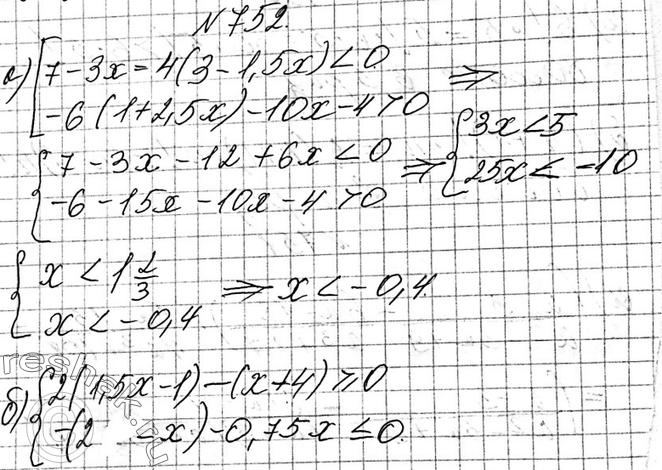 №752.
а) [7-3x=4(3-1,5x)<0
[-6(1+2,5x)-10x-4>0 ⇒
{7-3x-12+6x<0
{-6-15x-10x-4>0 ⇒ {3x<5
{25x<-10
{x<1 2/3
{x<-0,4 ⇒ x<-0,4.
б) {2(1,5x-1)-(x+4)≥0
{-(2 -x)-0,75x≤0.
reshak.ru